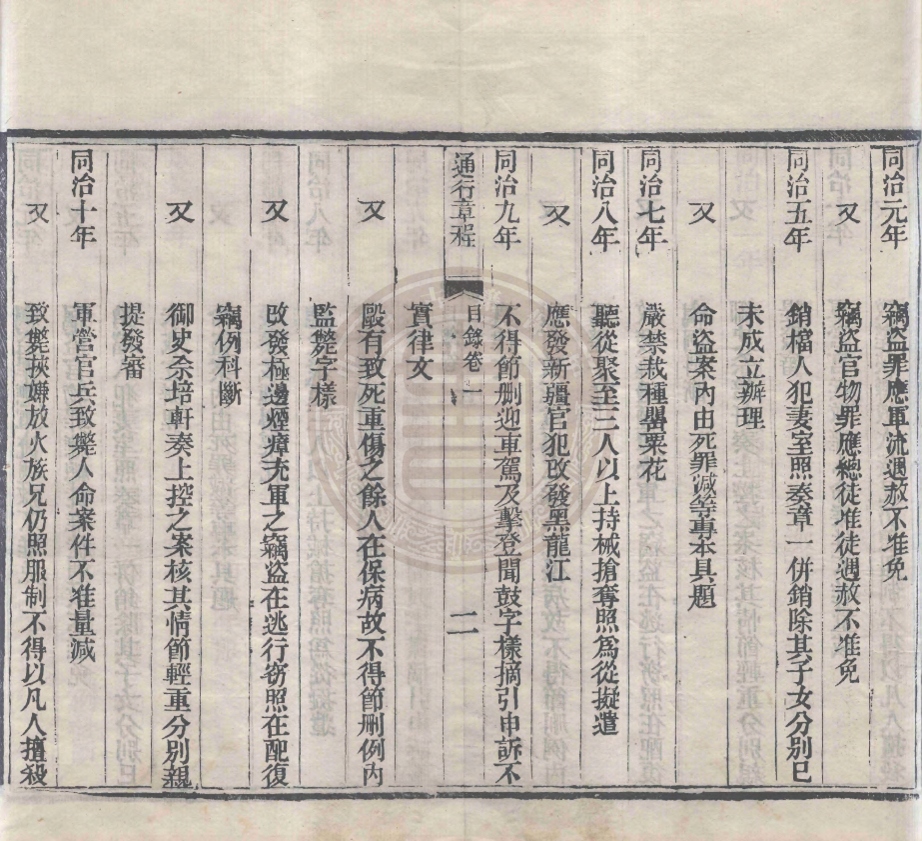 同治元年 竊盜罪應軍流遇赦不准免
又 竊盜官物罪應總徒准徒遇赦不准免
同治五年 銷檔人犯妻室照奏章一併銷除其子女分別已
未成立辦理
又 命盜案內由死罪減等專本具題
同治七年 嚴禁栽種罌粟花
同治八年 聽從聚至三人以上持械搶奪照為從擬遣
又 應發新疆官犯改發黑龍江
同治九年 不得節刪迎車駕及擊登聞鼓字樣摘引申訴不
通行章程 目錄卷一 二
實律文
又 毆有致死重傷之餘人在保病故不得節刪例內
監斃字樣
又 改發極邊煙瘴充軍之竊盜在逃行竊照在配復
竊例科斷
又 御史佘培軒奏上控之案核其情節輕重分別親
提發審
同治十年 軍營官兵致斃人命案件不准量減
又 致斃挾嫌放火族兄仍照服制不得以凡人擅殺